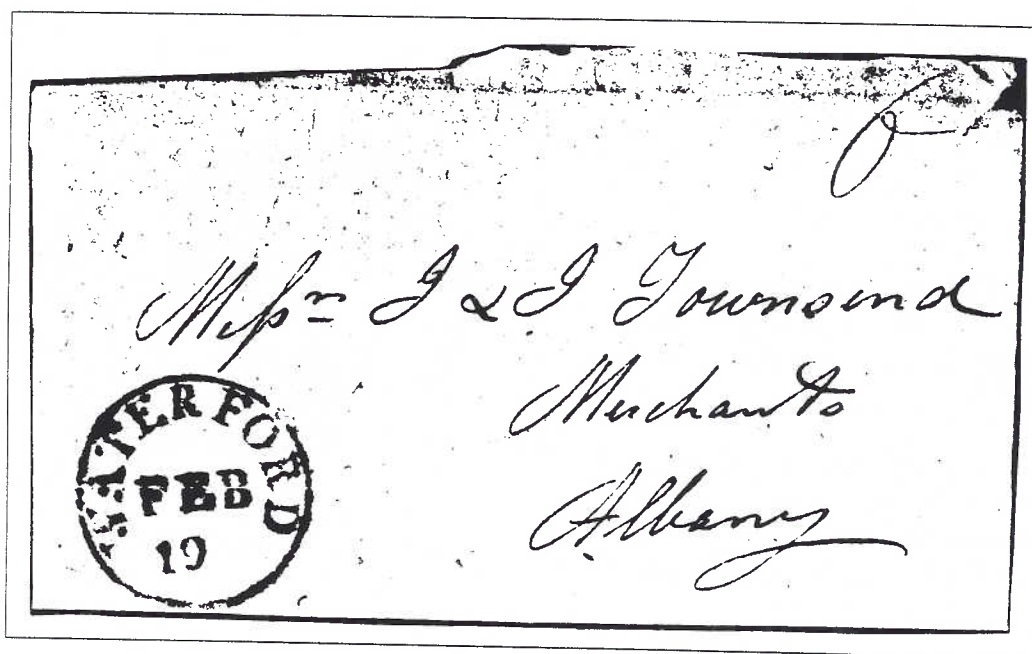 6
Messrs I & I Townsend
Merchants
Albany
WATERFORD
FEB
19